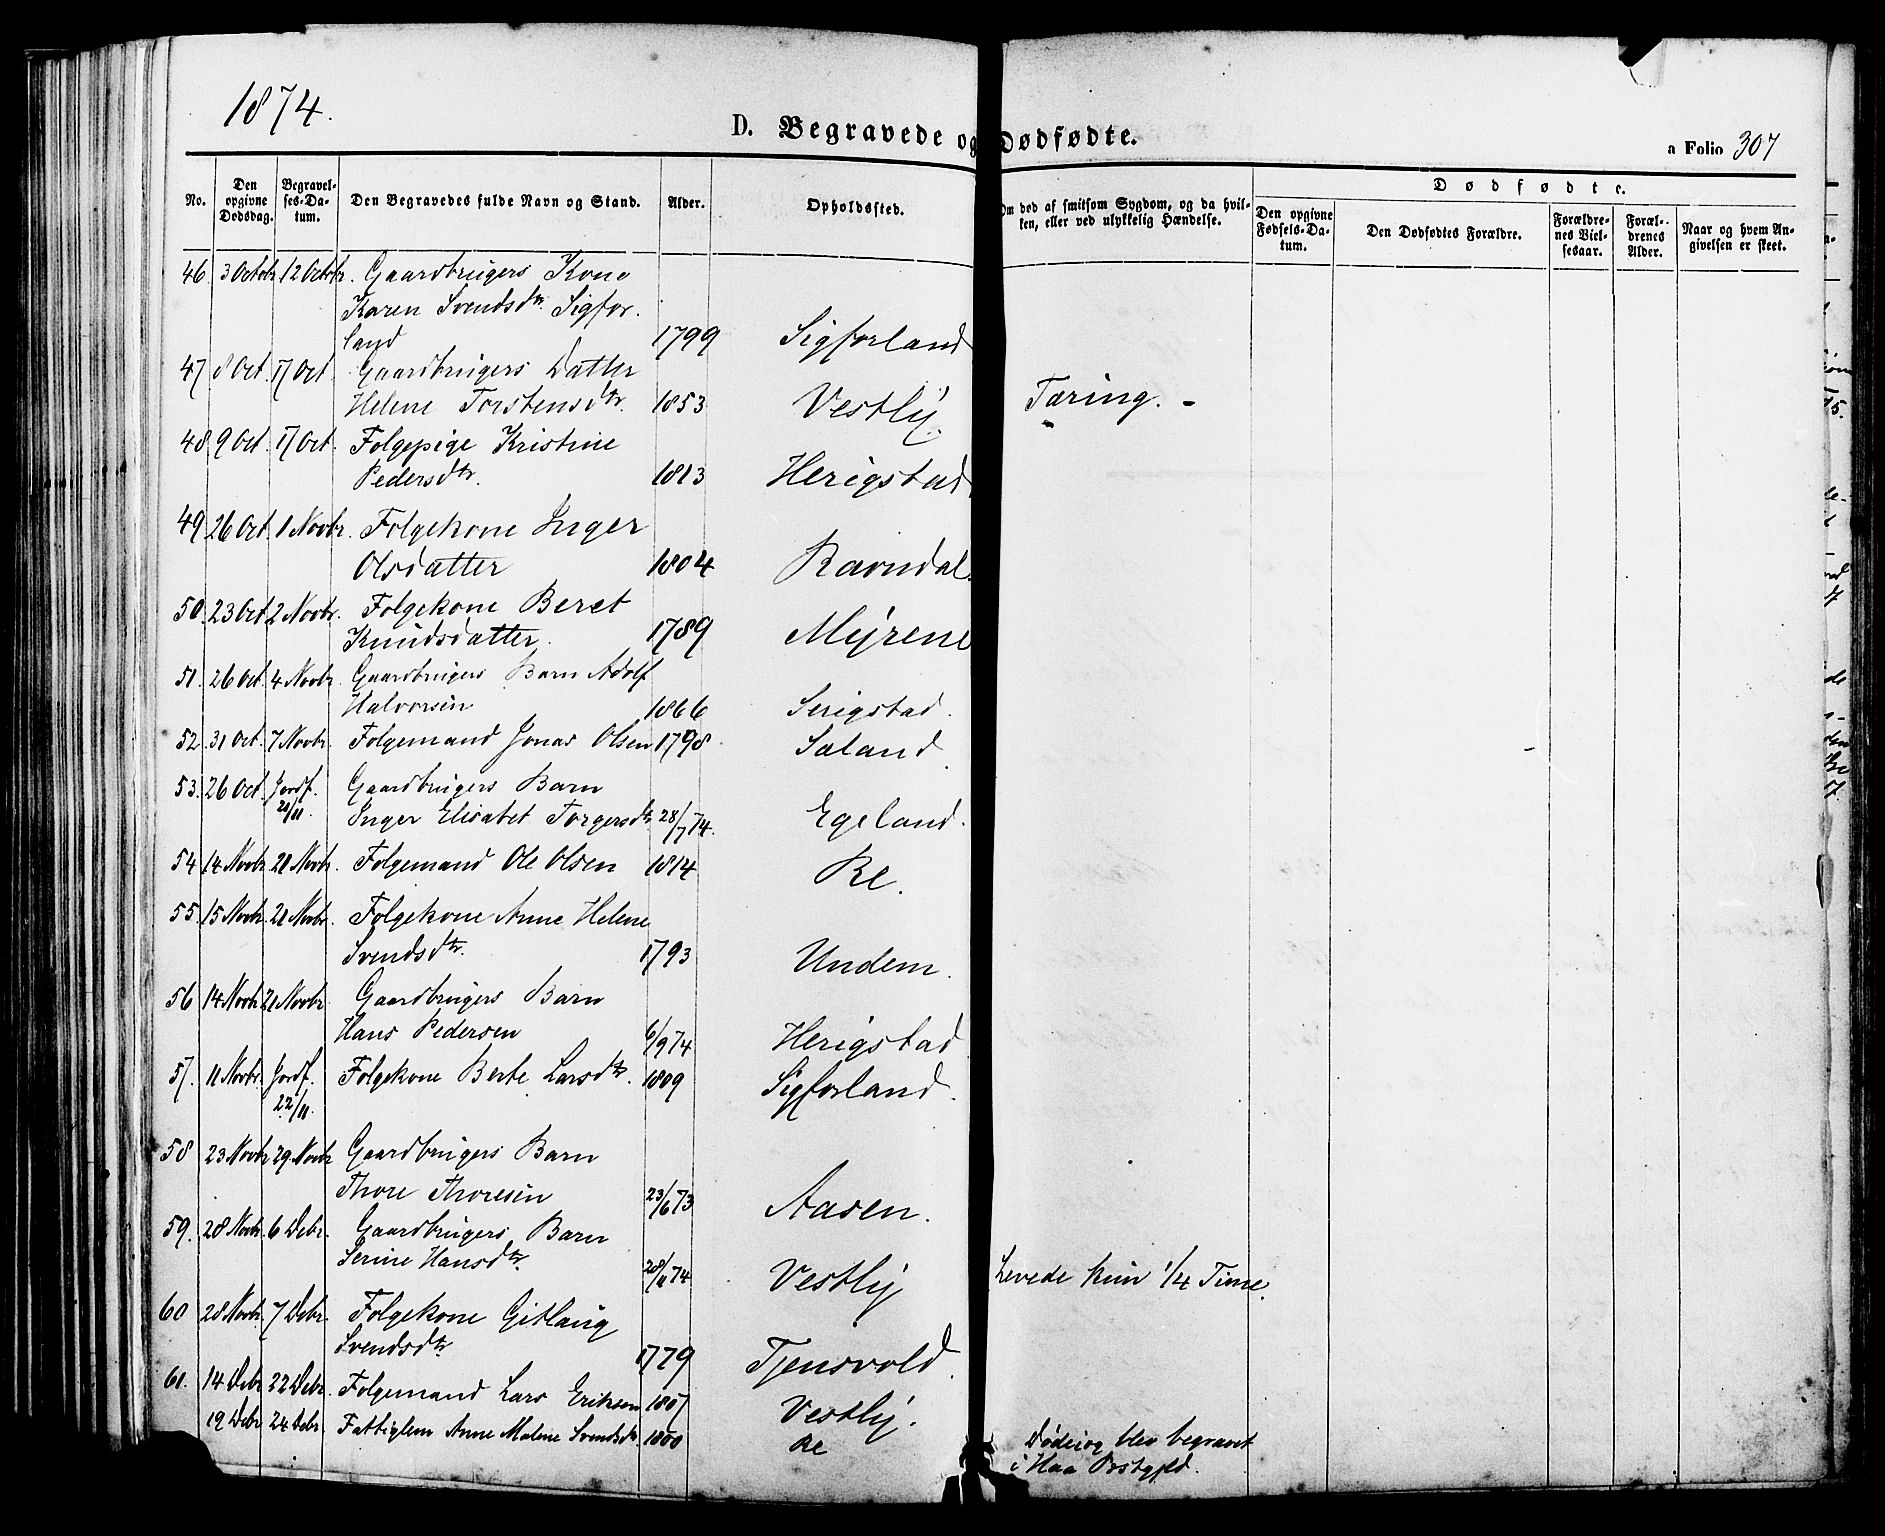 1874.
D. Begravede og Dødfødte.
a Folio 307
No.
Den opgivne Dødsdag.
Begravelses-Datum.
Den Begravedes fulde Navn og Stand.
Alder.
Opholdssted.
Om død af smitsom Sygdom, og da hvilken, eller ved ulykkelig Hændelse.
Dødfødte.
Den opgivne Fødsels-Datum.
Den Dødfødtes Forældre.
Forældrenes Vielsesaar.
Forældrenes Alder.
Naar og hvem Angivelsen er skeet.
46 3 Octobr 12 Octobr. Gaardbrugers Kone
Karen Svendsdtr. Sigfor-
land 1799 Sigforland
47 8 Oct. 17 Oct. Gaardbrugers Datter
Helene Torstensdtr. 1853 Vestly Tæring. -
48 9 Oct. 17 Oct. Folgepige Kristine
Pedersdtr. 1813 Herigstad
49 26 Oct. 1 Novbr. Folgekone Inger
Olsdatter 1804 Ravndal
50. 23 Oct 2 Novbr. Folgekone Beret
Knudsdatter. 1789 Myrene
51. 26 Oct. 4 Novbr. Gaardbrugers Barn Adolf
Halvorsen 1866 Serigstad.
52. 31 Oct. 7 Novbr. Folgemand Jonas Olsen 1798 Sæland
53. 26 Oct. Jordf. Gaardbrugers Barn
21/11. Inger Elisabet Torgersdtr. 28/7 74. Egeland.
54 14 Novbr 21 Novbr. Folgemand Ole Olsen 1814 Re.
55. 15 Novbr. 21 Novbr. Folgekone Anne Helene
Svendsdtr. 1793 Undem.
56 14 Novbr 21 Novbr. Gaardbrugers Barn
Hans Pedersen 6/9 74 Herigstad
57. 11 Novbr. Jordf. Folgekone Berte Larsdtr. 1809 Sigforland.
22/11.
58 23 Novbr 29 Novbr Gaardbrugers Barn
Thore Thoresen 23/6 73 Aasen.
59. 28 Novbr. 6 Debr. Gaardbrugers Barn
Serine Hansdtr. 28/11 74 Vestly Levede kun 1/4 Time.
60 28 Novbr. 7 Debr. Folgekone Gitlaug
Svendsdtr. 1779 Tjensvold.
61. 14 Debr 22 Debr. Folgemand Lars Eriksen 1807 Vestly.
19 Debr 24 Debr. Fattiglem Anne Malene Svendsdtr. 1800 Re Døde og blev begravet
i Haa Prstgjeld.